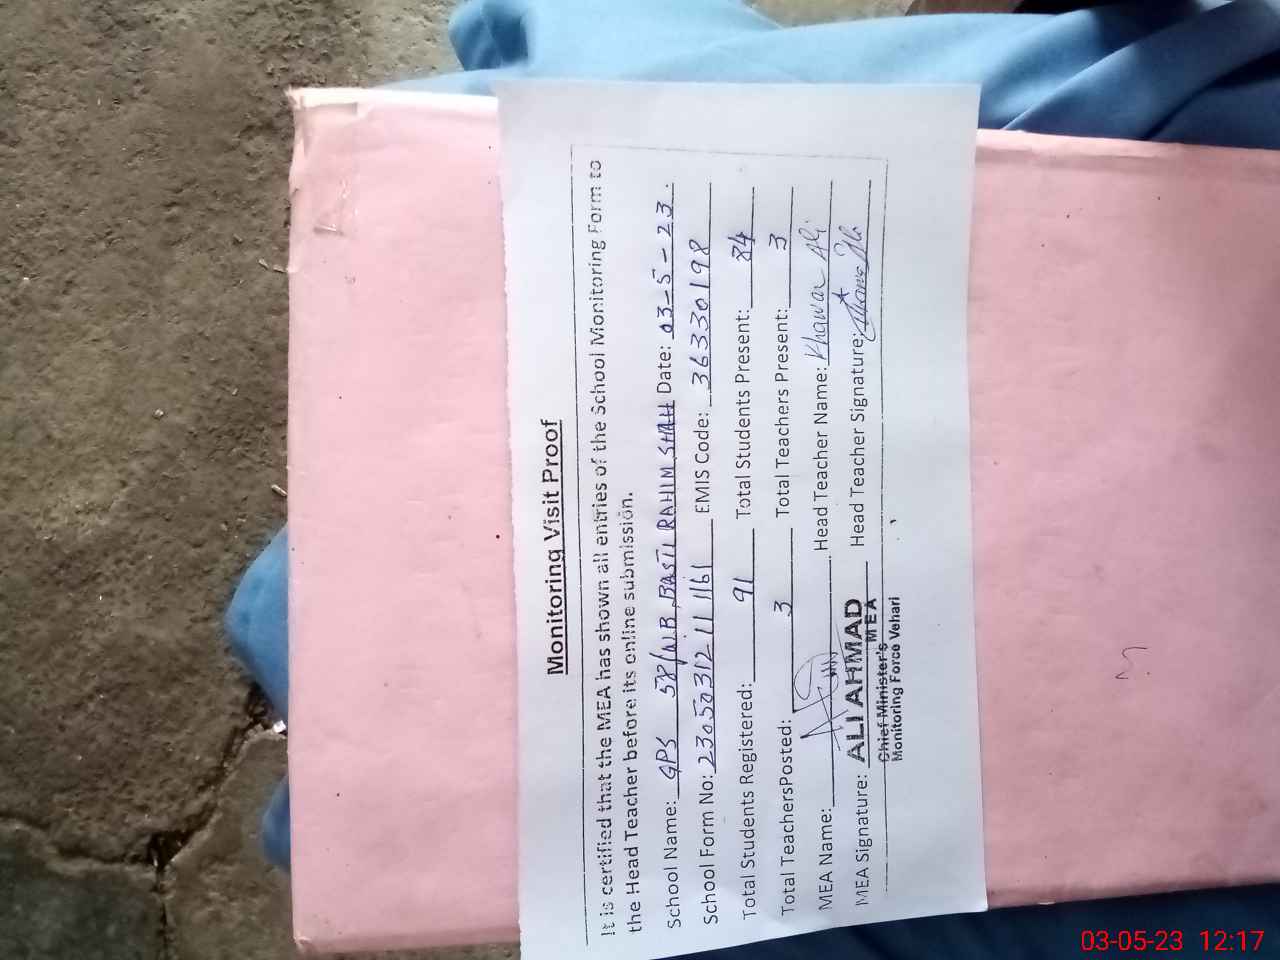 Monitoring Visit Proof
It is certified that the MEA has shown all entries of the School Monitoring Form to
the Head Teacher before its online submission.
School Name: GPS 58/WB BASTI RAHIM SHAH Date: 03-5-23.
School Form No: 230503121111161 EMIS Code: 36330198
Total Students Registered: 91 Total Students Present: 84
Total TeachersPosted: 3 Total Teachers Present: 3
MEA Name: Head Teacher Name: Khawar Ali
MEA Signature: ALI AHMAD Head Teacher Signature:
MEA
Chief Minister's
Monitoring Force Vehari
03-05-23 12:17